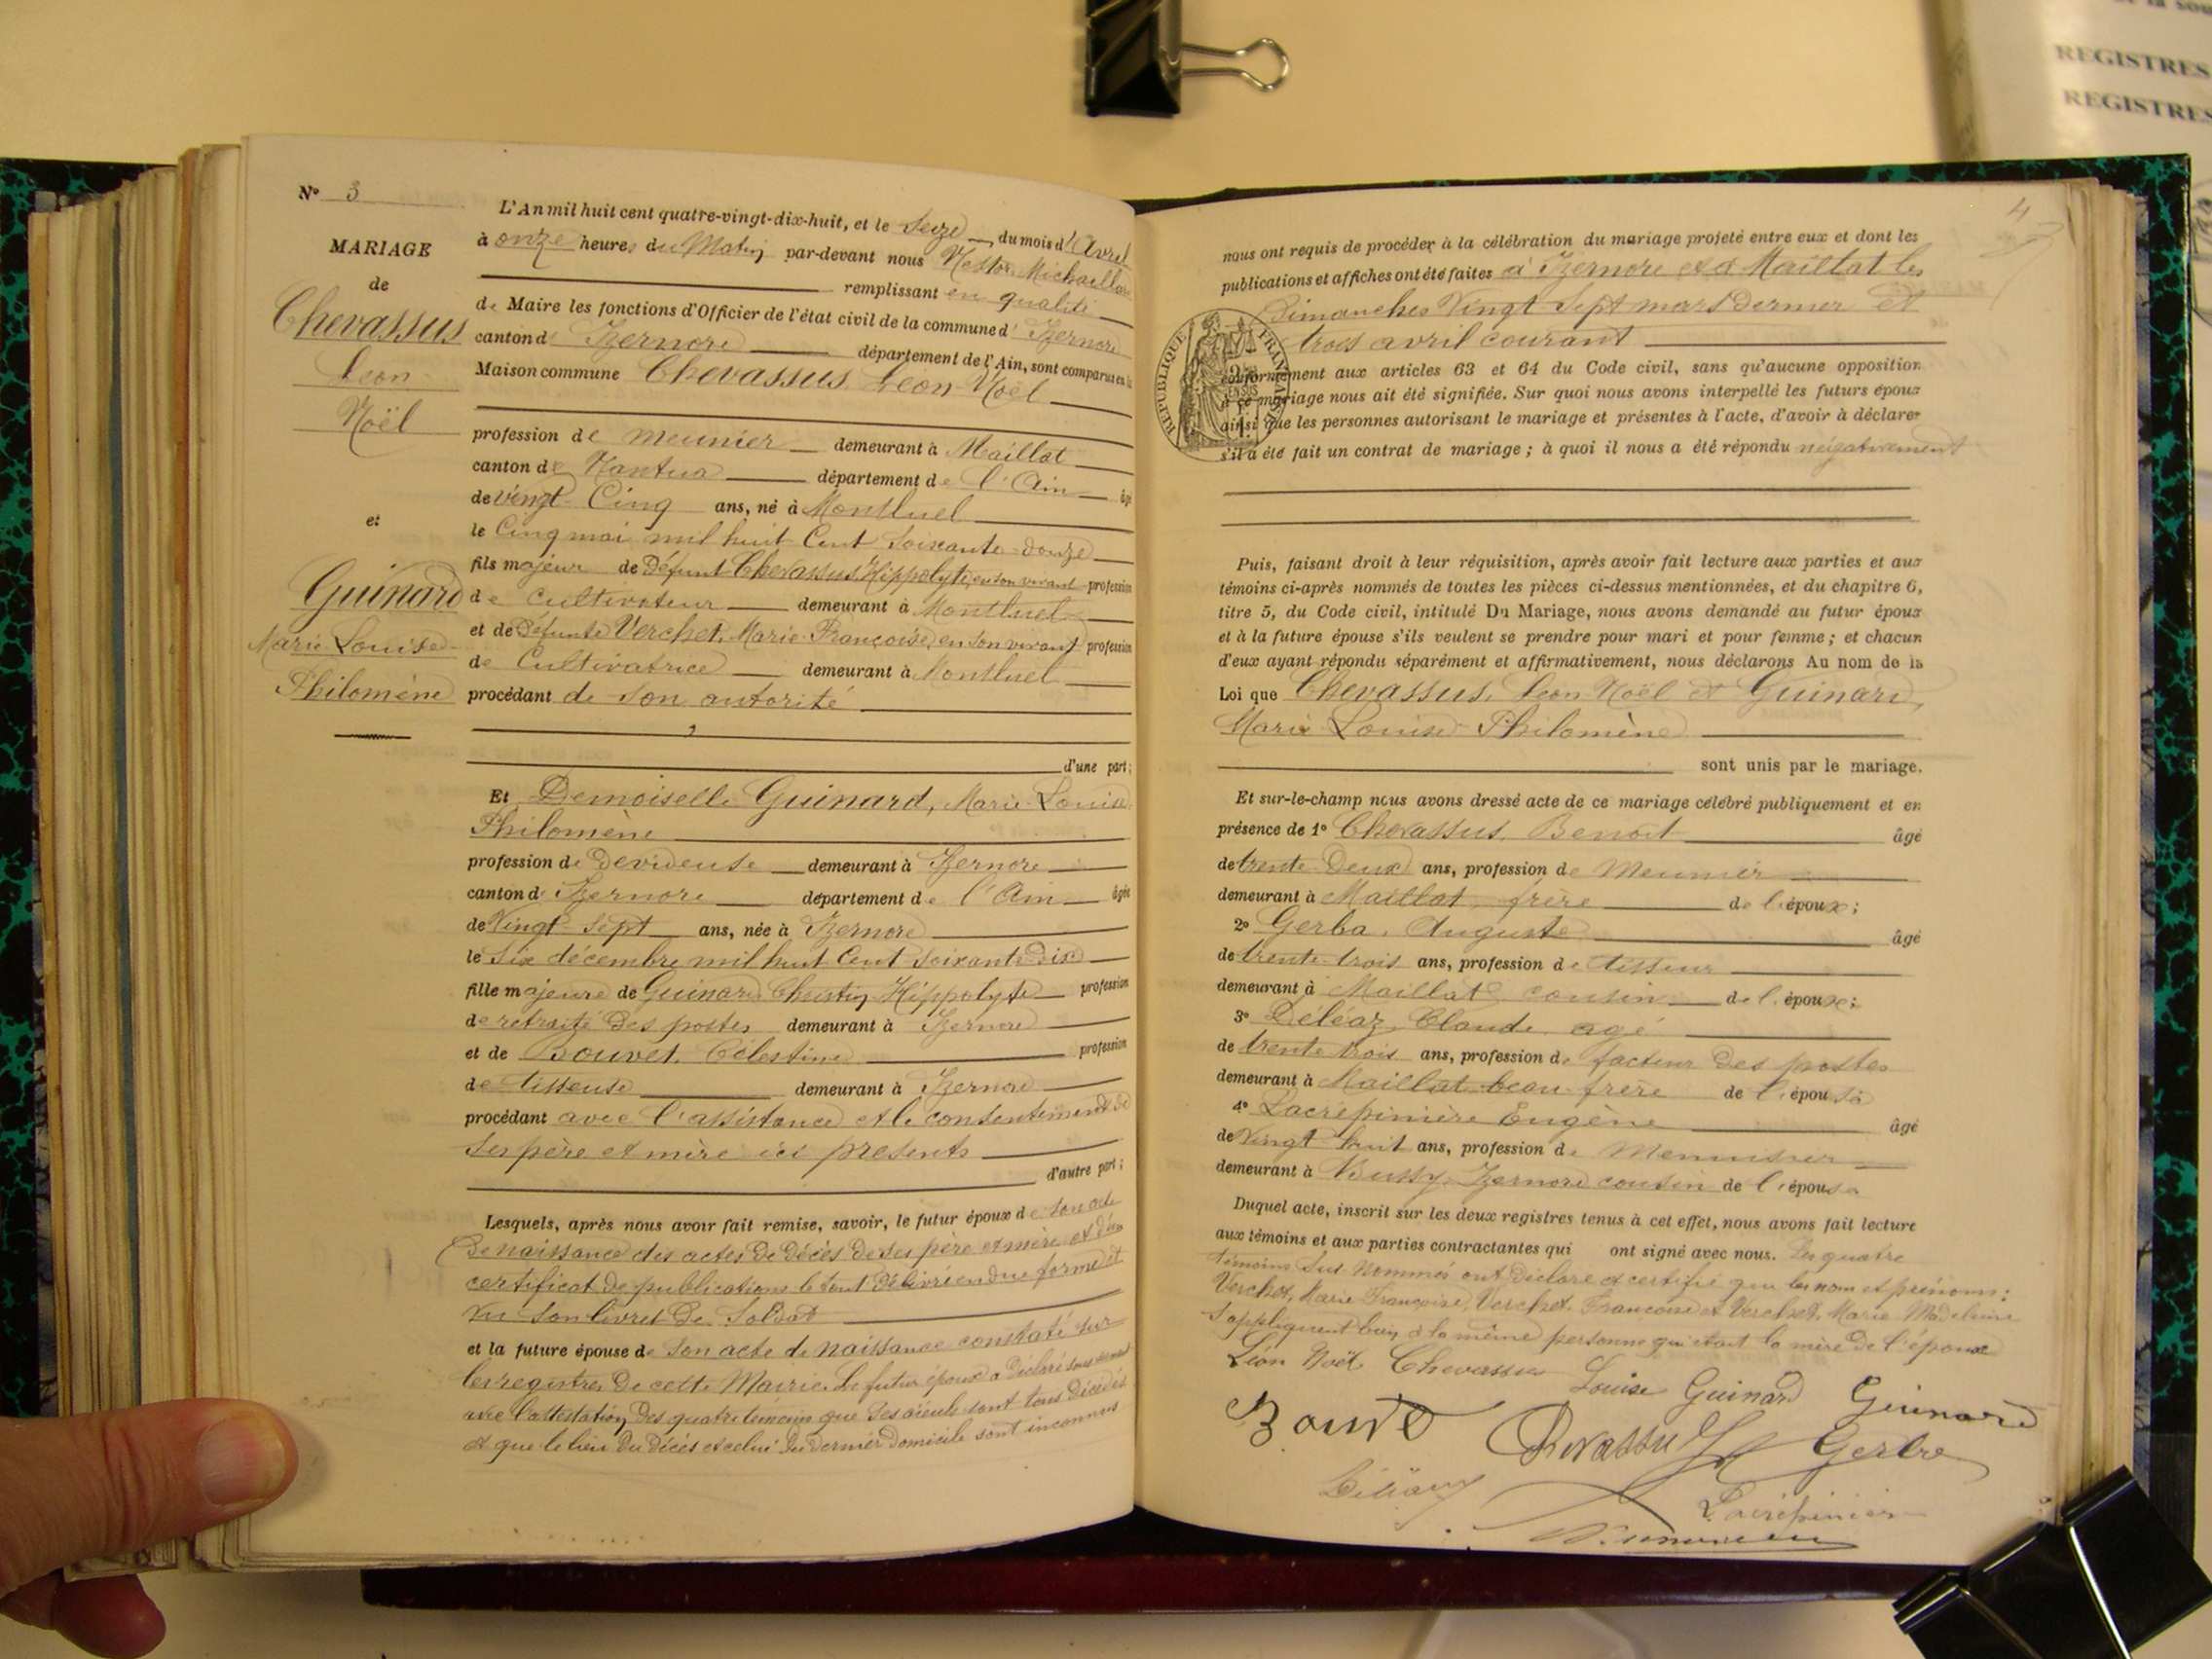 N° 3
MARIAGE
de
Chevassus
Leon
Noël
et
Guinard
Marie Louise
Philomène
L'An mil huit cent quatre-vingt-dix-huit, et le Seize du mois d'Avril
à onze heures du Matin par-devant nous Nestor Michaillard
remplissant en qualité
de Maire les fonctions d'Officier de l'état civil de la commune d'Izernore
canton d'Izernore département de l'Ain, sont comparus en la
Maison commune Chevassus Leon Noël
profession de meunier demeurant à Maillat
canton de Nantua département de l'Ain âgé
de vingt-Cinq ans, né à Montluel
le Cinq mai mil huit Cent Soixante-douze
fils majeur de Défunt Chevassus Hippolyte, en son vivant profession
de Cultivateur demeurant à Montluel
et de Défunte Verchet, Marie Françoise, en son vivant profession
de Cultivatrice demeurant à Montluel
procédant de son autorité
d'une part;
Et Demoiselle Guinard, Marie Louise
Philomène
profession de devideuse demeurant à Izernore
canton d'Izernore département de l'Ain âgée
de Vingt-Sept ans, née à Izernore
le Six décembre mil huit Cent Soixante Dix
fille majeure de Guinard Christin Hippolyte profession
de retraité des postes demeurant à Izernore
et de Bouvet, Célestine profession
de tisseuse demeurant à Izernore
procédant avec l'assistance et le consentement de
ses père et mère ici présents
d'autre part;
Lesquels, après nous avoir fait remise, savoir, le futur époux de son acte
De naissance des actes De Décès de ses père et mère et d'un
certificat de publications le tout Délivré en due forme et
vu son livret De Soldat
et la future épouse de son acte de naissance constaté sur
les registres De cette Mairie. Le futur époux a Déclaré sous serment
avec l'attestation des quatre témoins que ses aïeuls sont tous Décédés
et que le lieu Du Décès et celui Du dernier Domicile sont inconnus
4
nous ont requis de procéder à la célébration du mariage projeté entre eux et dont les
publications et affiches ont été faites à Izernore et à Maillat les
Dimanches Vingt Sept mars Dernier et
trois avril courant
RÉPUBLIQUE FRANÇAISE
conformément aux articles 63 et 64 du Code civil, sans qu'aucune opposition
à ce mariage nous ait été signifiée. Sur quoi nous avons interpellé les futurs époux
ainsi que les personnes autorisant le mariage et présentes à l'acte, d'avoir à déclarer
s'il a été fait un contrat de mariage; à quoi il nous a été répondu négativement
Puis, faisant droit à leur réquisition, après avoir fait lecture aux parties et aux
témoins ci-après nommés de toutes les pièces ci-dessus mentionnées, et du chapitre 6,
titre 5, du Code civil, intitulé Du Mariage, nous avons demandé au futur époux
et à la future épouse s'ils veulent se prendre pour mari et pour femme; et chacun
d'eux ayant répondu séparément et affirmativement, nous déclarons Au nom de la
Loi que Chevassus, Leon Noël et Guinard,
Marie Louise Philomène
sont unis par le mariage.
Et sur-le-champ nous avons dressé acte de ce mariage célébré publiquement et en
présence de 1° Chevassus, Benoit âgé
de trente Deux ans, profession de Meunier
demeurant à Maillat, frère de l'époux;
2° Gerba, Auguste âgé
de trente-trois ans, profession de tisseur
demeurant à Maillat cousin de l'époux;
3° Déléaz, Claude agé
de trente trois ans, profession de facteur Des postes
demeurant à Maillat beau-frère de l'épouse
4° Lacrepinière Eugène âgé
de Vingt huit ans, profession de Menuisier
demeurant à Bussy-Izernore cousin de l'épouse
Duquel acte, inscrit sur les deux registres tenus à cet effet, nous avons fait lecture
aux témoins et aux parties contractantes qui ont signé avec nous. Les quatre
témoins sus Nommés ont Déclaré et certifié que les nom et prénoms:
Verchet, Marie Françoise, Verchet, Françoise et Verchet, Marie Madeleine
s'appliquent bien à la même personne qui était la mère de l'époux
Léon Noël Chevassus Louise Guinard Guinard
Bouvet Chevassus Gerbe
Déléaz Lacrépinière
REGISTRES
REGISTRES